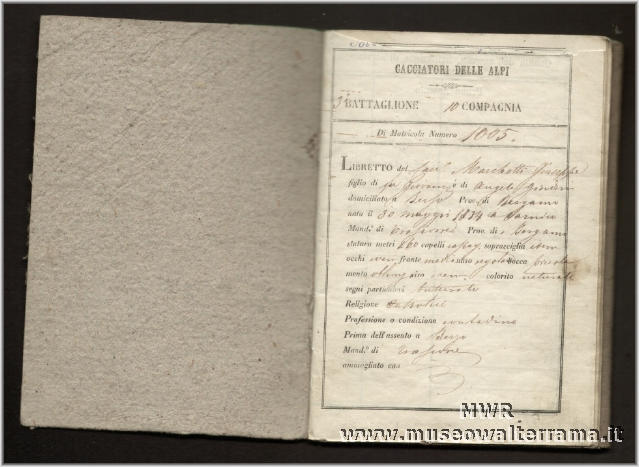 CACCIATORI DELLE ALPI
3° BATTAGLIONE 10 COMPAGNIA
Di Matricola Numero 1005.
LIBRETTO del Marchetti Giuseppe
figlio di fu Giovanni e di Angela
domiciliato a Prov. di Bergamo
nato il 30 maggio 1834 a Sarnico
Mand.° di Prov. di Bergamo
statura metri 1,60 capelli castag. sopracciglia idem
occhi fronte media naso regolare bocca
mento oblung viso colorito naturale
segni particolari butterato
Religione Cattolica
Professione o condizione contadino
Prima dell'assento a
Mand.° di
ammogliato con
MWR
www.museowalterrama.it